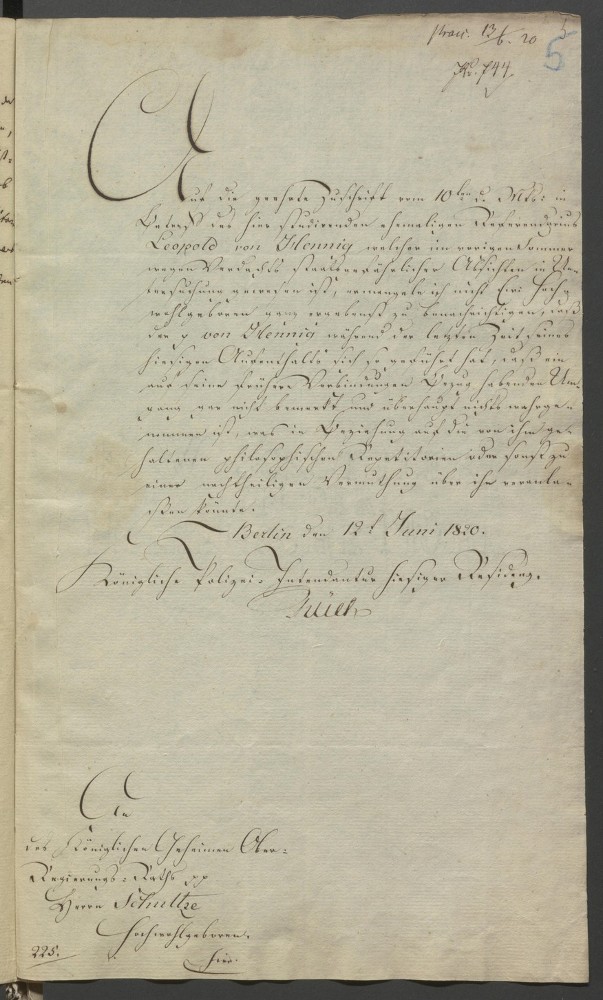 praes. 13/6. 20
5
No. 744.
Auf die geehrte Zuschrift vom 10ten d. Mts: in
Betreff des hier studirenden ehemaligen Referendarius
Leopold von Hennig welcher im vorigen Sommer
wegen Verdachts staatsgefährlicher Absichten in Un
tersuchung gewesen ist, ermangele ich nicht Ew: Hoch
wohlgeboren ganz ergebenst zu benachrichtigen, daß
der p von Hennig während der letzten Zeit seines
hiesigen Aufenthalts sich so geführt hat, daß ein
auf seine frühere Verbindungen Bezug habender Um
gang gar nicht bemerkt und überhaupt nichts wahrge-
nommen ist, was in Beziehung auf die von ihm ge-
haltenen philosophischen Repetitorien oder sonst zu
einer nachtheiligen Vermuthung über ihn veranla-
ßen könnte.
Berlin den 12t Juni 1820.
Königliche Polizei-Intendantur hiesiger Residenz.
An
des Königlichen Geheimen Ober-
Regierungs-Raths pp
Herrn Schultze
Hochwohlgeboren.
hier.
225.